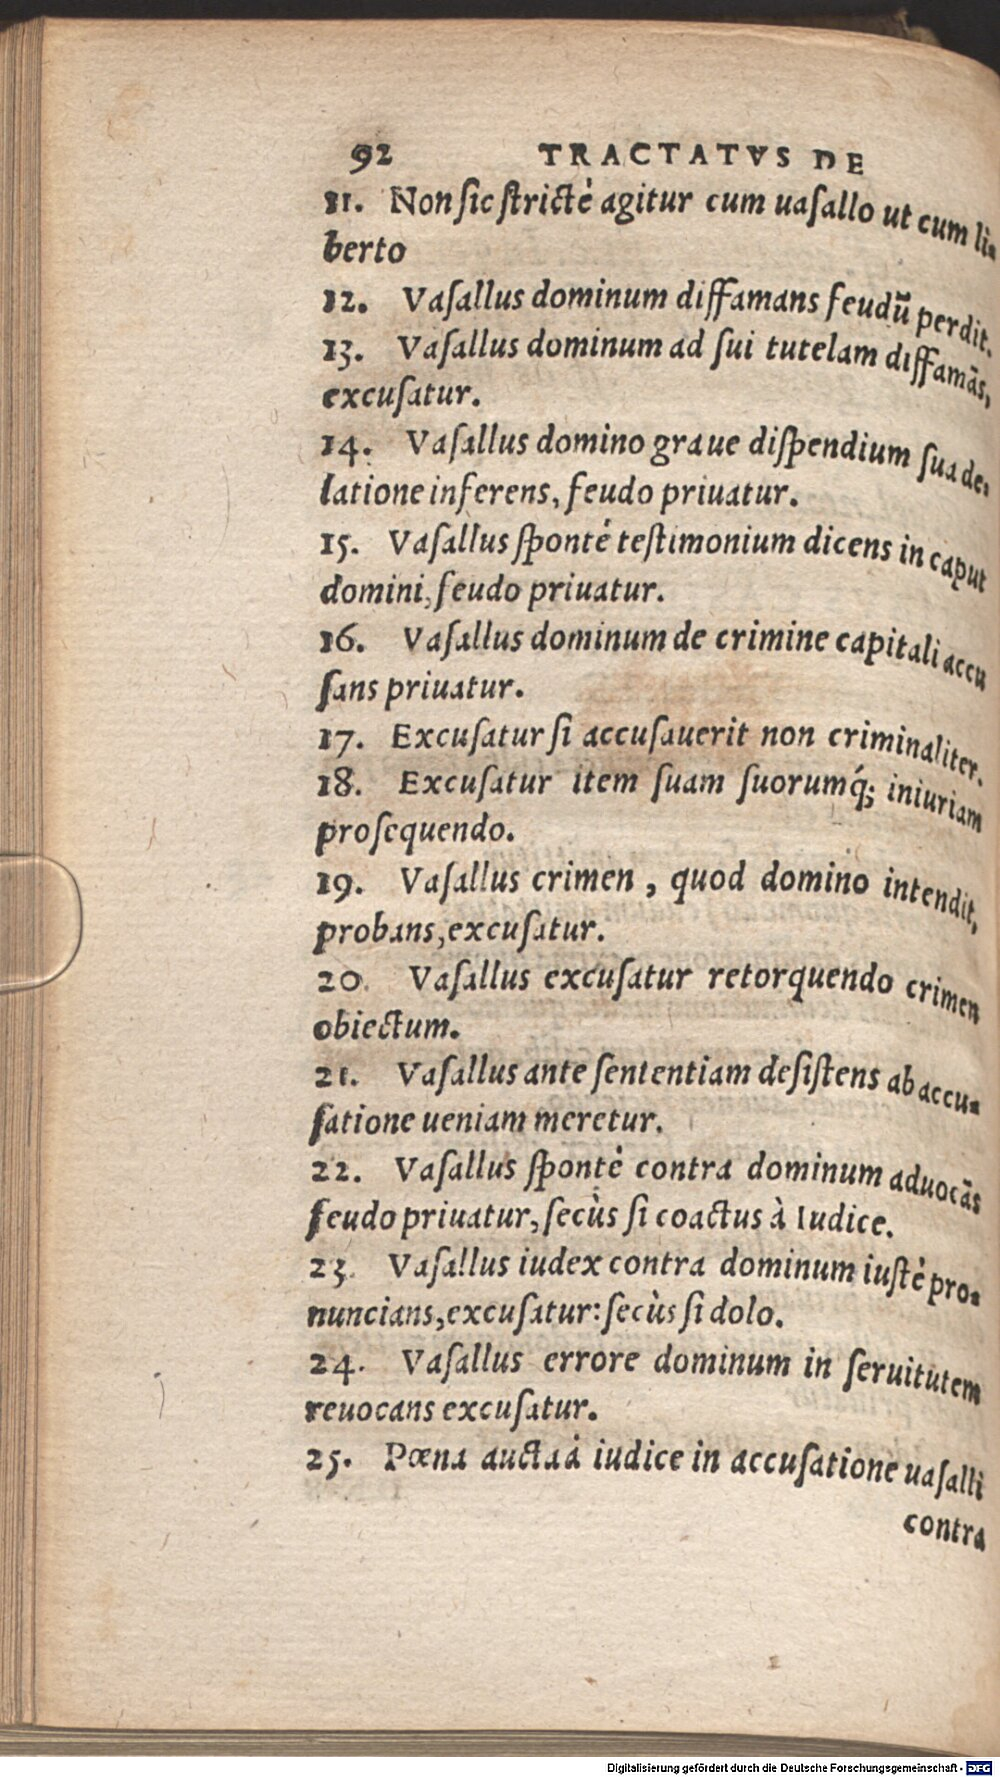 92 TRACTATVS DE
11. Non ſic ſtrictè agitur cum uaſallo ut cum li-
berto
12. Vaſallus dominum diffamans feudū perdit.
13. Vaſallus dominum ad ſui tutelam diffamās,
excuſatur.
14. Vaſallus domino graue diſpendium ſua de-
latione inferens, feudo priuatur.
15. Vaſallus ſpontè teſtimonium dicens in caput
domini, feudo priuatur.
16. Vaſallus dominum de crimine capitali accu
ſans priuatur.
17. Excuſatur ſi accuſauerit non criminaliter.
18. Excuſatur item ſuam ſuorumq́; iniuriam
proſequendo.
19. Vaſallus crimen, quod domino intendit,
probans, excuſatur.
20. Vaſallus excuſatur retorquendo crimen
obiectum.
21. Vaſallus ante ſententiam deſiſtens ab accu-
ſatione ueniam meretur.
22. Vaſallus ſpontè contra dominum aduocãs
feudo priuatur, ſecùs ſi coactus à Iudice.
23. Vaſallus iudex contra dominum iuſtè pro-
nuncians, excuſatur: ſecùs ſi dolo.
24. Vaſallus errore dominum in ſeruitutem
reuocans excuſatur.
25. Pœna aucta à iudice in accuſatione uaſalli
contra
Digitalisierung gefördert durch die Deutsche Forschungsgemeinschaft - DFG